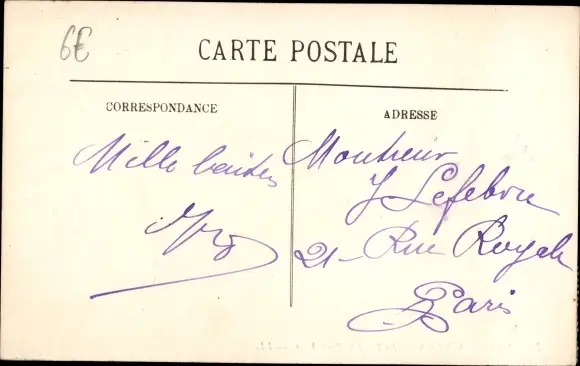 6€
CARTE POSTALE
CORRESPONDANCE
Mille baisers
ADRESSE
Monsieur
J Lefebvre
21 - Rue Royale
Paris